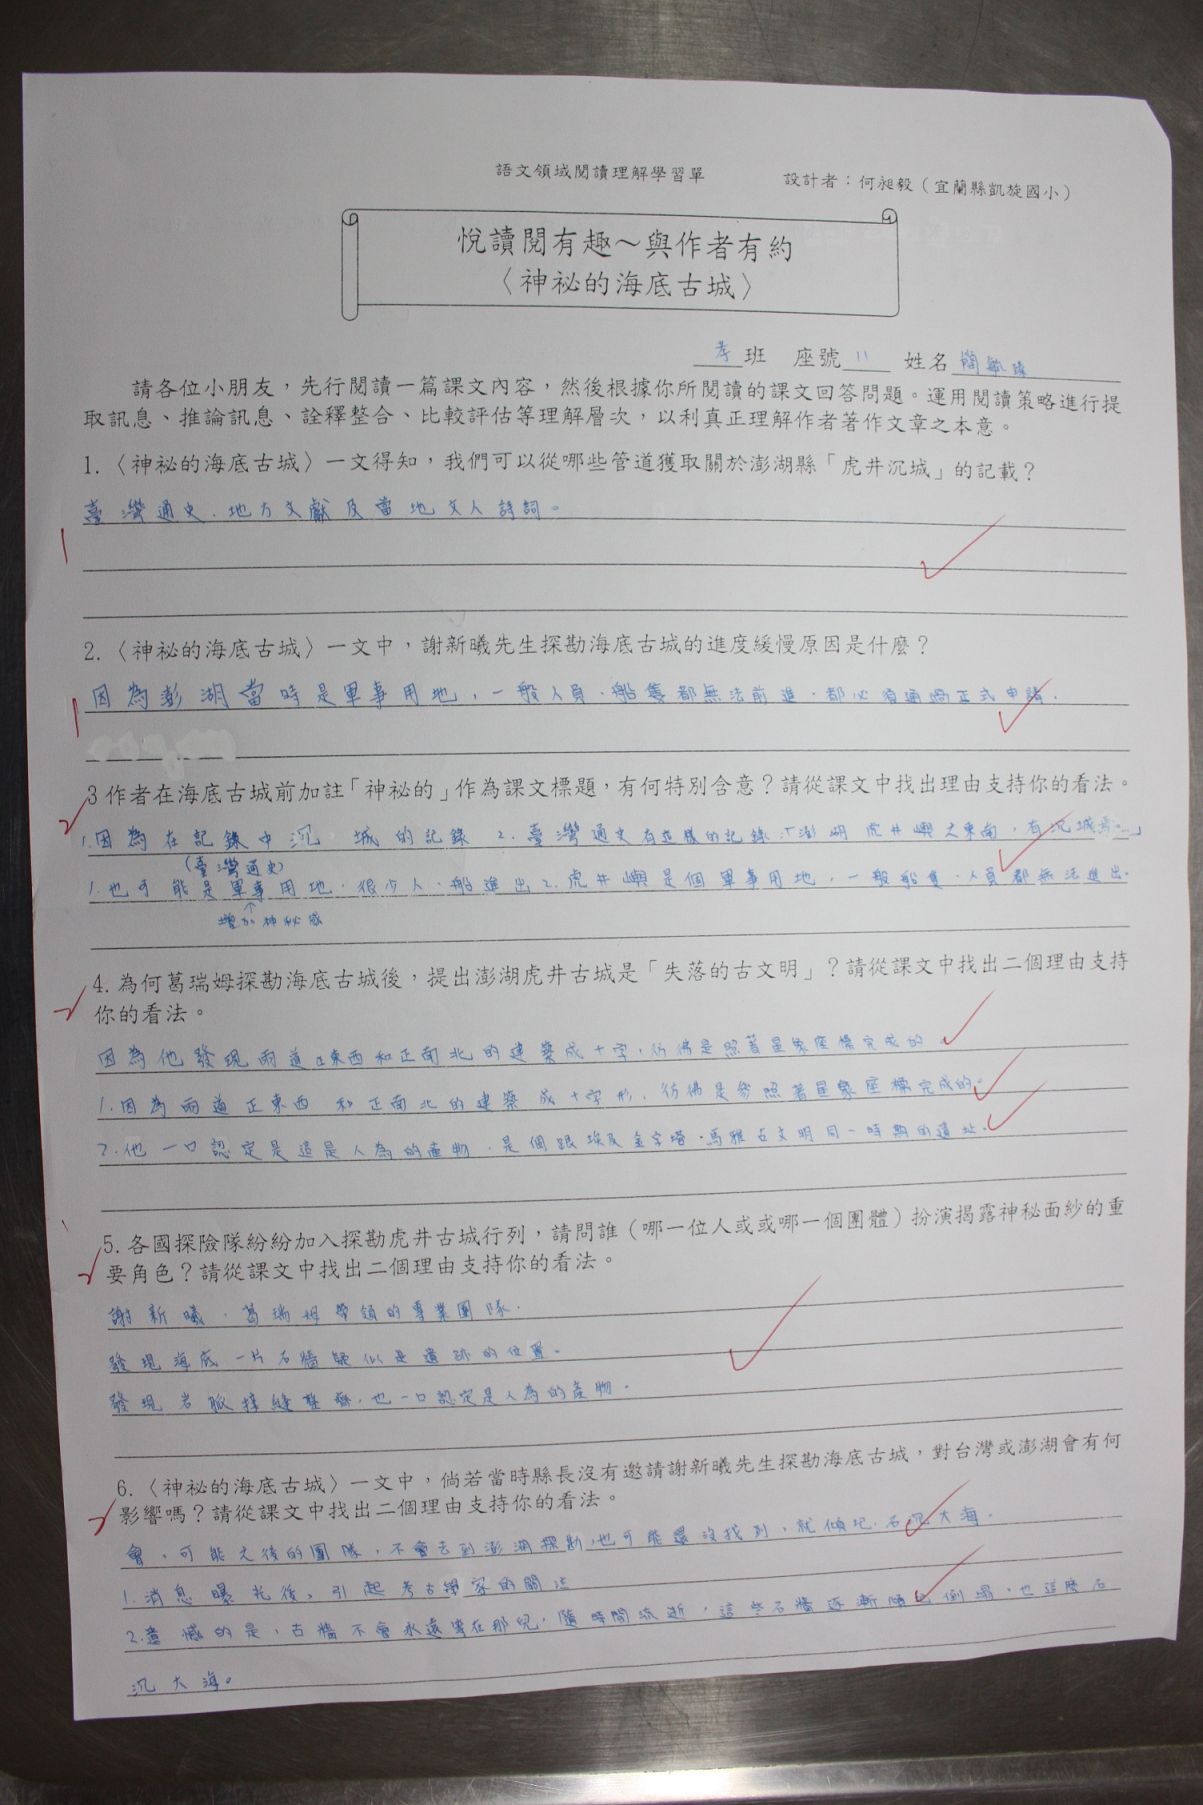 語文領域閱讀理解學習單 設計者：何昶毅（宜蘭縣凱旋國小）
悅讀閱有趣～與作者有約
〈神祕的海底古城〉
孝班 座號11 姓名簡
請各位小朋友，先行閱讀一篇課文內容，然後根據你所閱讀的課文回答問題。運用閱讀策略進行提
取訊息、推論訊息、詮釋整合、比較評估等理解層次，以利真正理解作者著作文章之本意。
1.〈神祕的海底古城〉一文得知，我們可以從哪些管道獲取關於澎湖縣「虎井沉城」的記載？
臺灣通史、地方文獻及當地文人詩詞。
2.〈神祕的海底古城〉一文中，謝新曦先生探勘海底古城的進度緩慢原因是什麼？
因為彭湖當時是軍事用地，一般人員、船隻都無法前進，都必須通過正式申請.
3 作者在海底古城前加註「神祕的」作為課文標題，有何特別含意？請從課文中找出理由支持你的看法。
1.因為在記錄中沉城的記錄 2.臺灣通史有這樣的記錄:「澎湖虎井嶼之東南，有沉城焉…」
（臺灣通史）
1.也可能是軍事用地，很少人、船進出 2.虎井嶼是個軍事用地，一般船隻、人員都無法進出.
↑
增加神秘感
4.為何葛瑞姆探勘海底古城後，提出澎湖虎井古城是「失落的古文明」？請從課文中找出二個理由支持
你的看法。
因為他發現兩道正東西和正南北的建築成十字，彷彿是照著星象座標完成的.
1.因為兩道正東西和正南北的建築成十字形，彷彿是參照著星象座標完成的。
2.他一口認定是這是人為的產物，是個跟埃及金字塔、馬雅古文明同一時期的遺址。
5.各國探險隊紛紛加入探勘虎井古城行列，請問誰（哪一位人或或哪一個團體）扮演揭露神秘面紗的重
要角色？請從課文中找出二個理由支持你的看法。
謝新曦、葛瑞姆帶領的專業團隊.
發現海底一片石牆疑似是遺跡的位置。
發現岩脈接縫整齊，也一口認定是人為的產物.
6.〈神祕的海底古城〉一文中，倘若當時縣長沒有邀請謝新曦先生探勘海底古城，對台灣或澎湖會有何
影響嗎？請從課文中找出二個理由支持你的看法。
會，可能之後的團隊，不會去到澎湖探勘，也可能還沒找到，就傾圮、石沉大海.
1.消息曝光後，引起考古學家的關注
2.遺憾的是，古牆不會永遠等在那兒，隨時間流逝，這些石牆逐漸傾圮倒塌，也這麼石
沉大海。